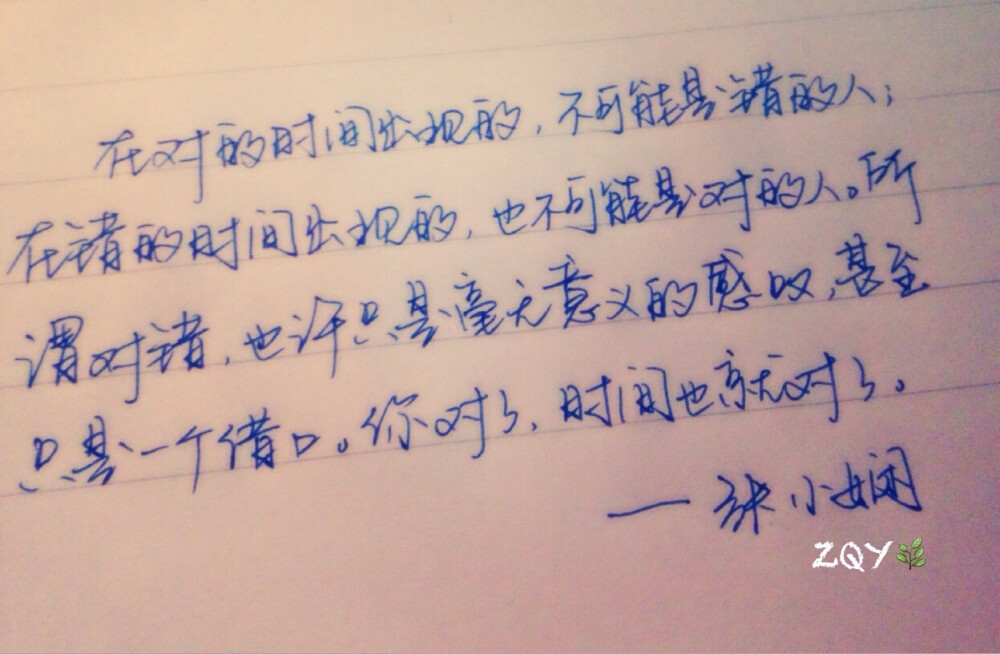 在对的时间出现的，不可能是错的人；
在错的时间出现的，也不可能是对的人。所
谓对错，也许只是毫无意义的感叹，甚至
只是一个借口。你对了，时间也就对了。
——张小娴
ZQY